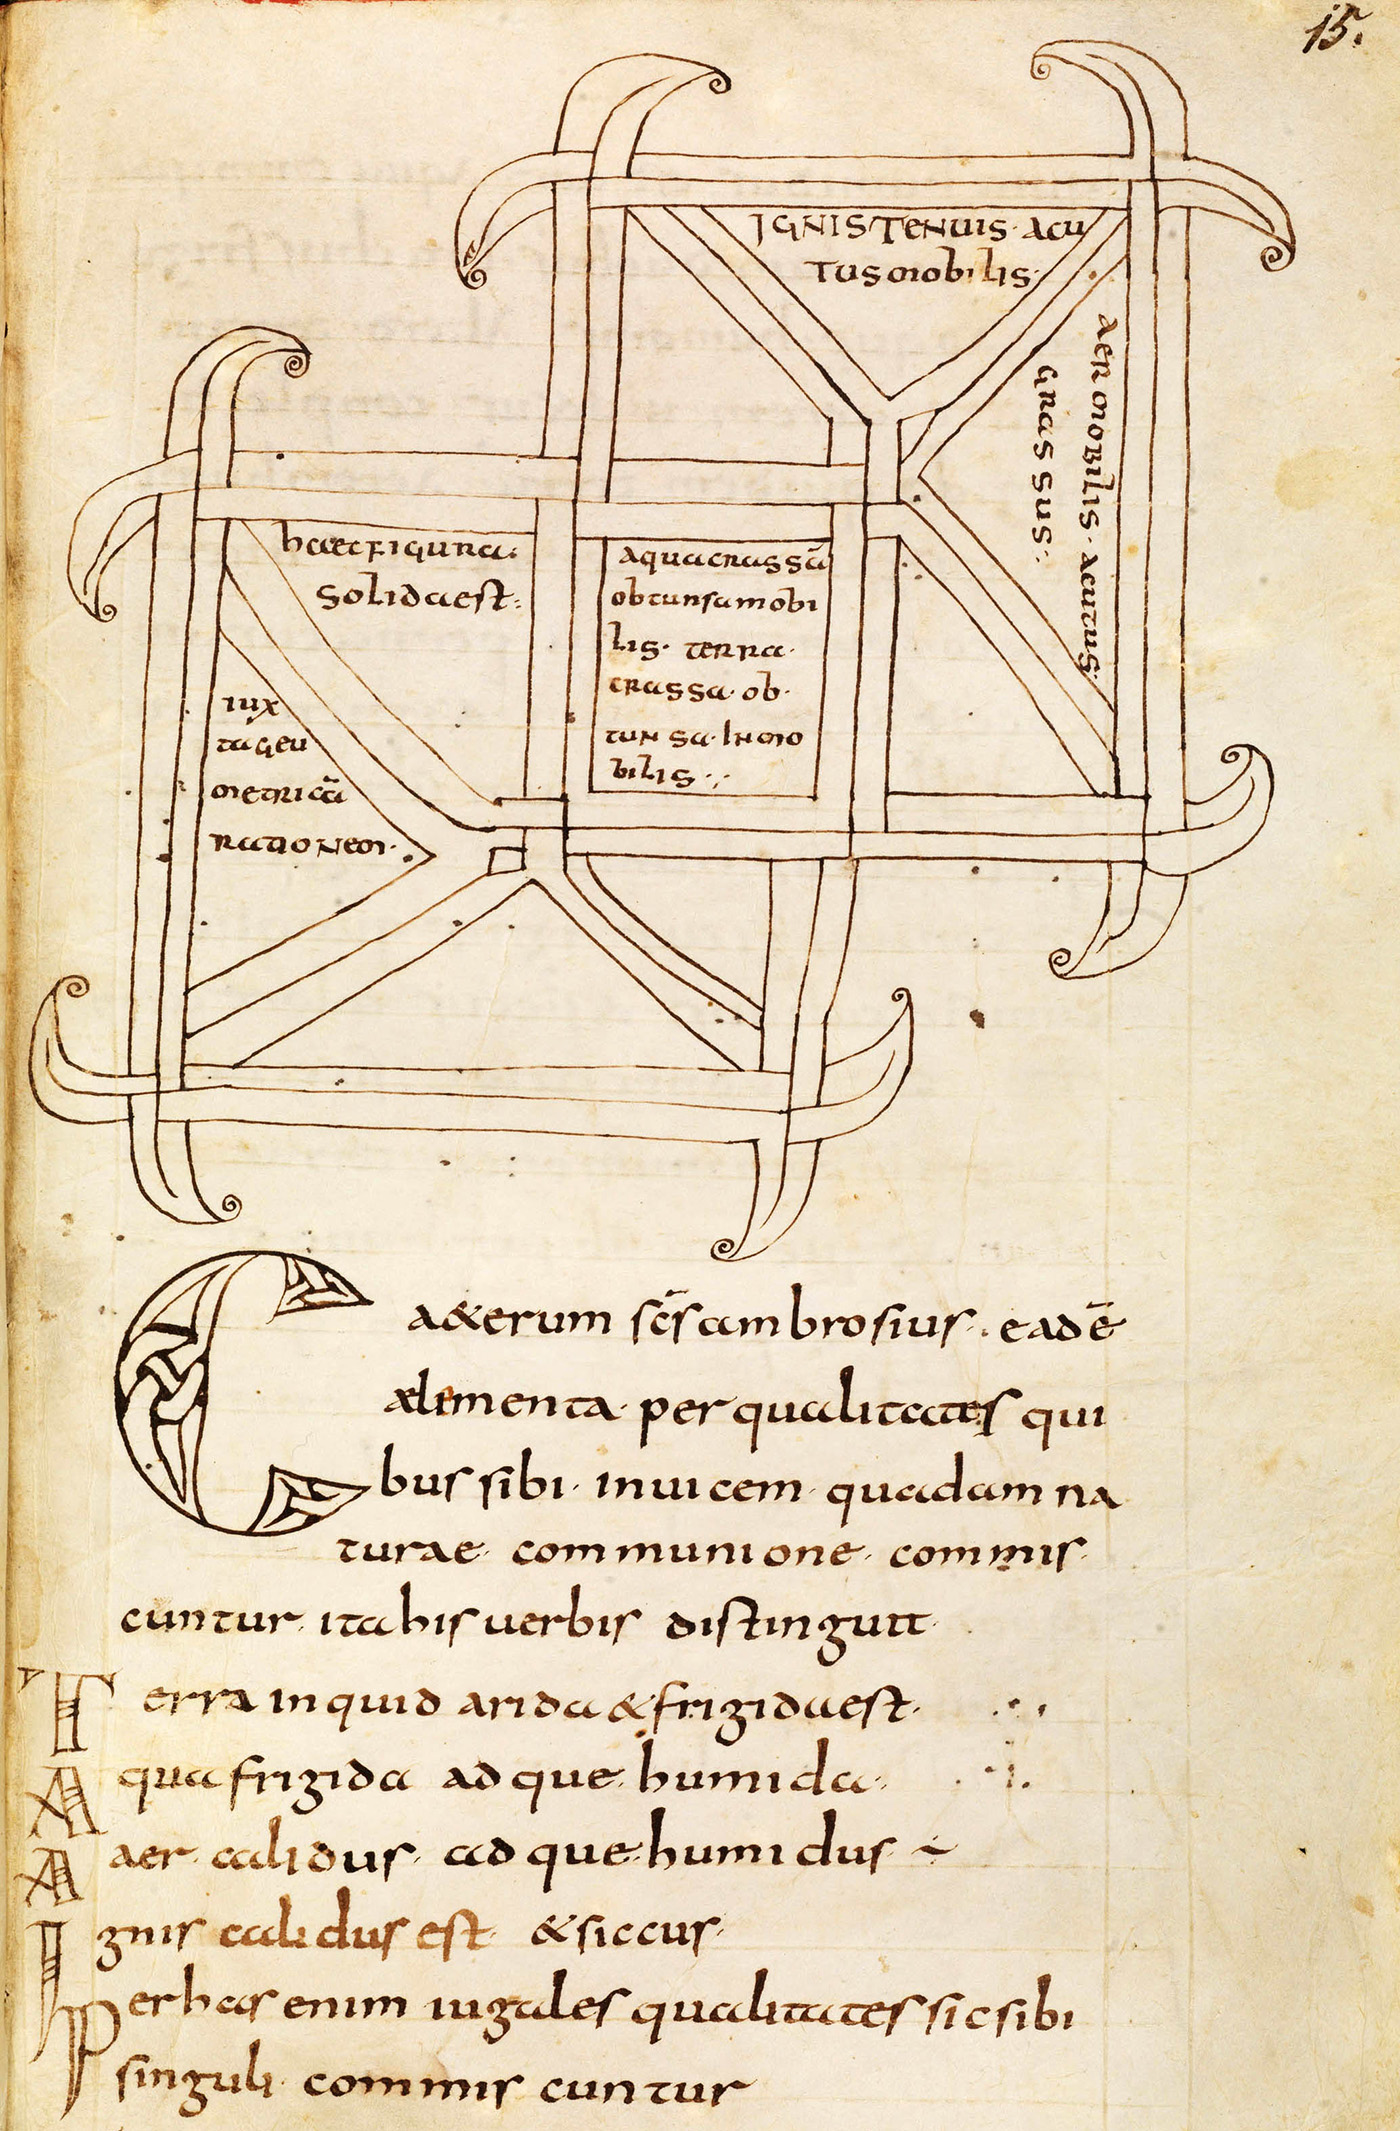 15.
IGNIS TENUIS· ACU
TUS mobilis·
AER mobilis· ACUTUS·
GRASSUS:
haec FIGURA·
Solida est:
aqua crassa
obtunsa mobi
lis· terra·
crassa· ob·
tunsa· Inmo
bilis·:
iux
ta geu
metricā
rationem·
Ca&erum scs̄ ambrosius·. eadē
aelimenta· per qualitates qui
bus sibi· inuicem· quadam na
turae· communione· commis
cuntur· ita his uerbis distinguit·
Terra inquid arida & frigida est·
Aqua frigida adque· humida·
Aaer· calidus· adque· humidus
Ignis calidus est· & siccus·
Per has enim iugales qualitates sic sibi
singuli· commis cuntur